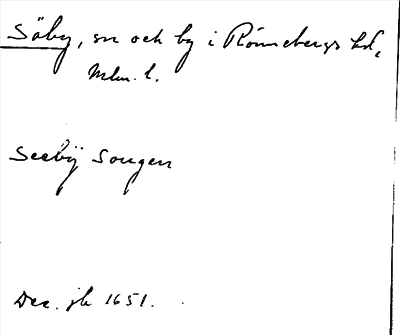 Säby, sn och by i Rönnebergs hd,
Mlm. l.
Seebÿ Songen
Dec. jb 1651.